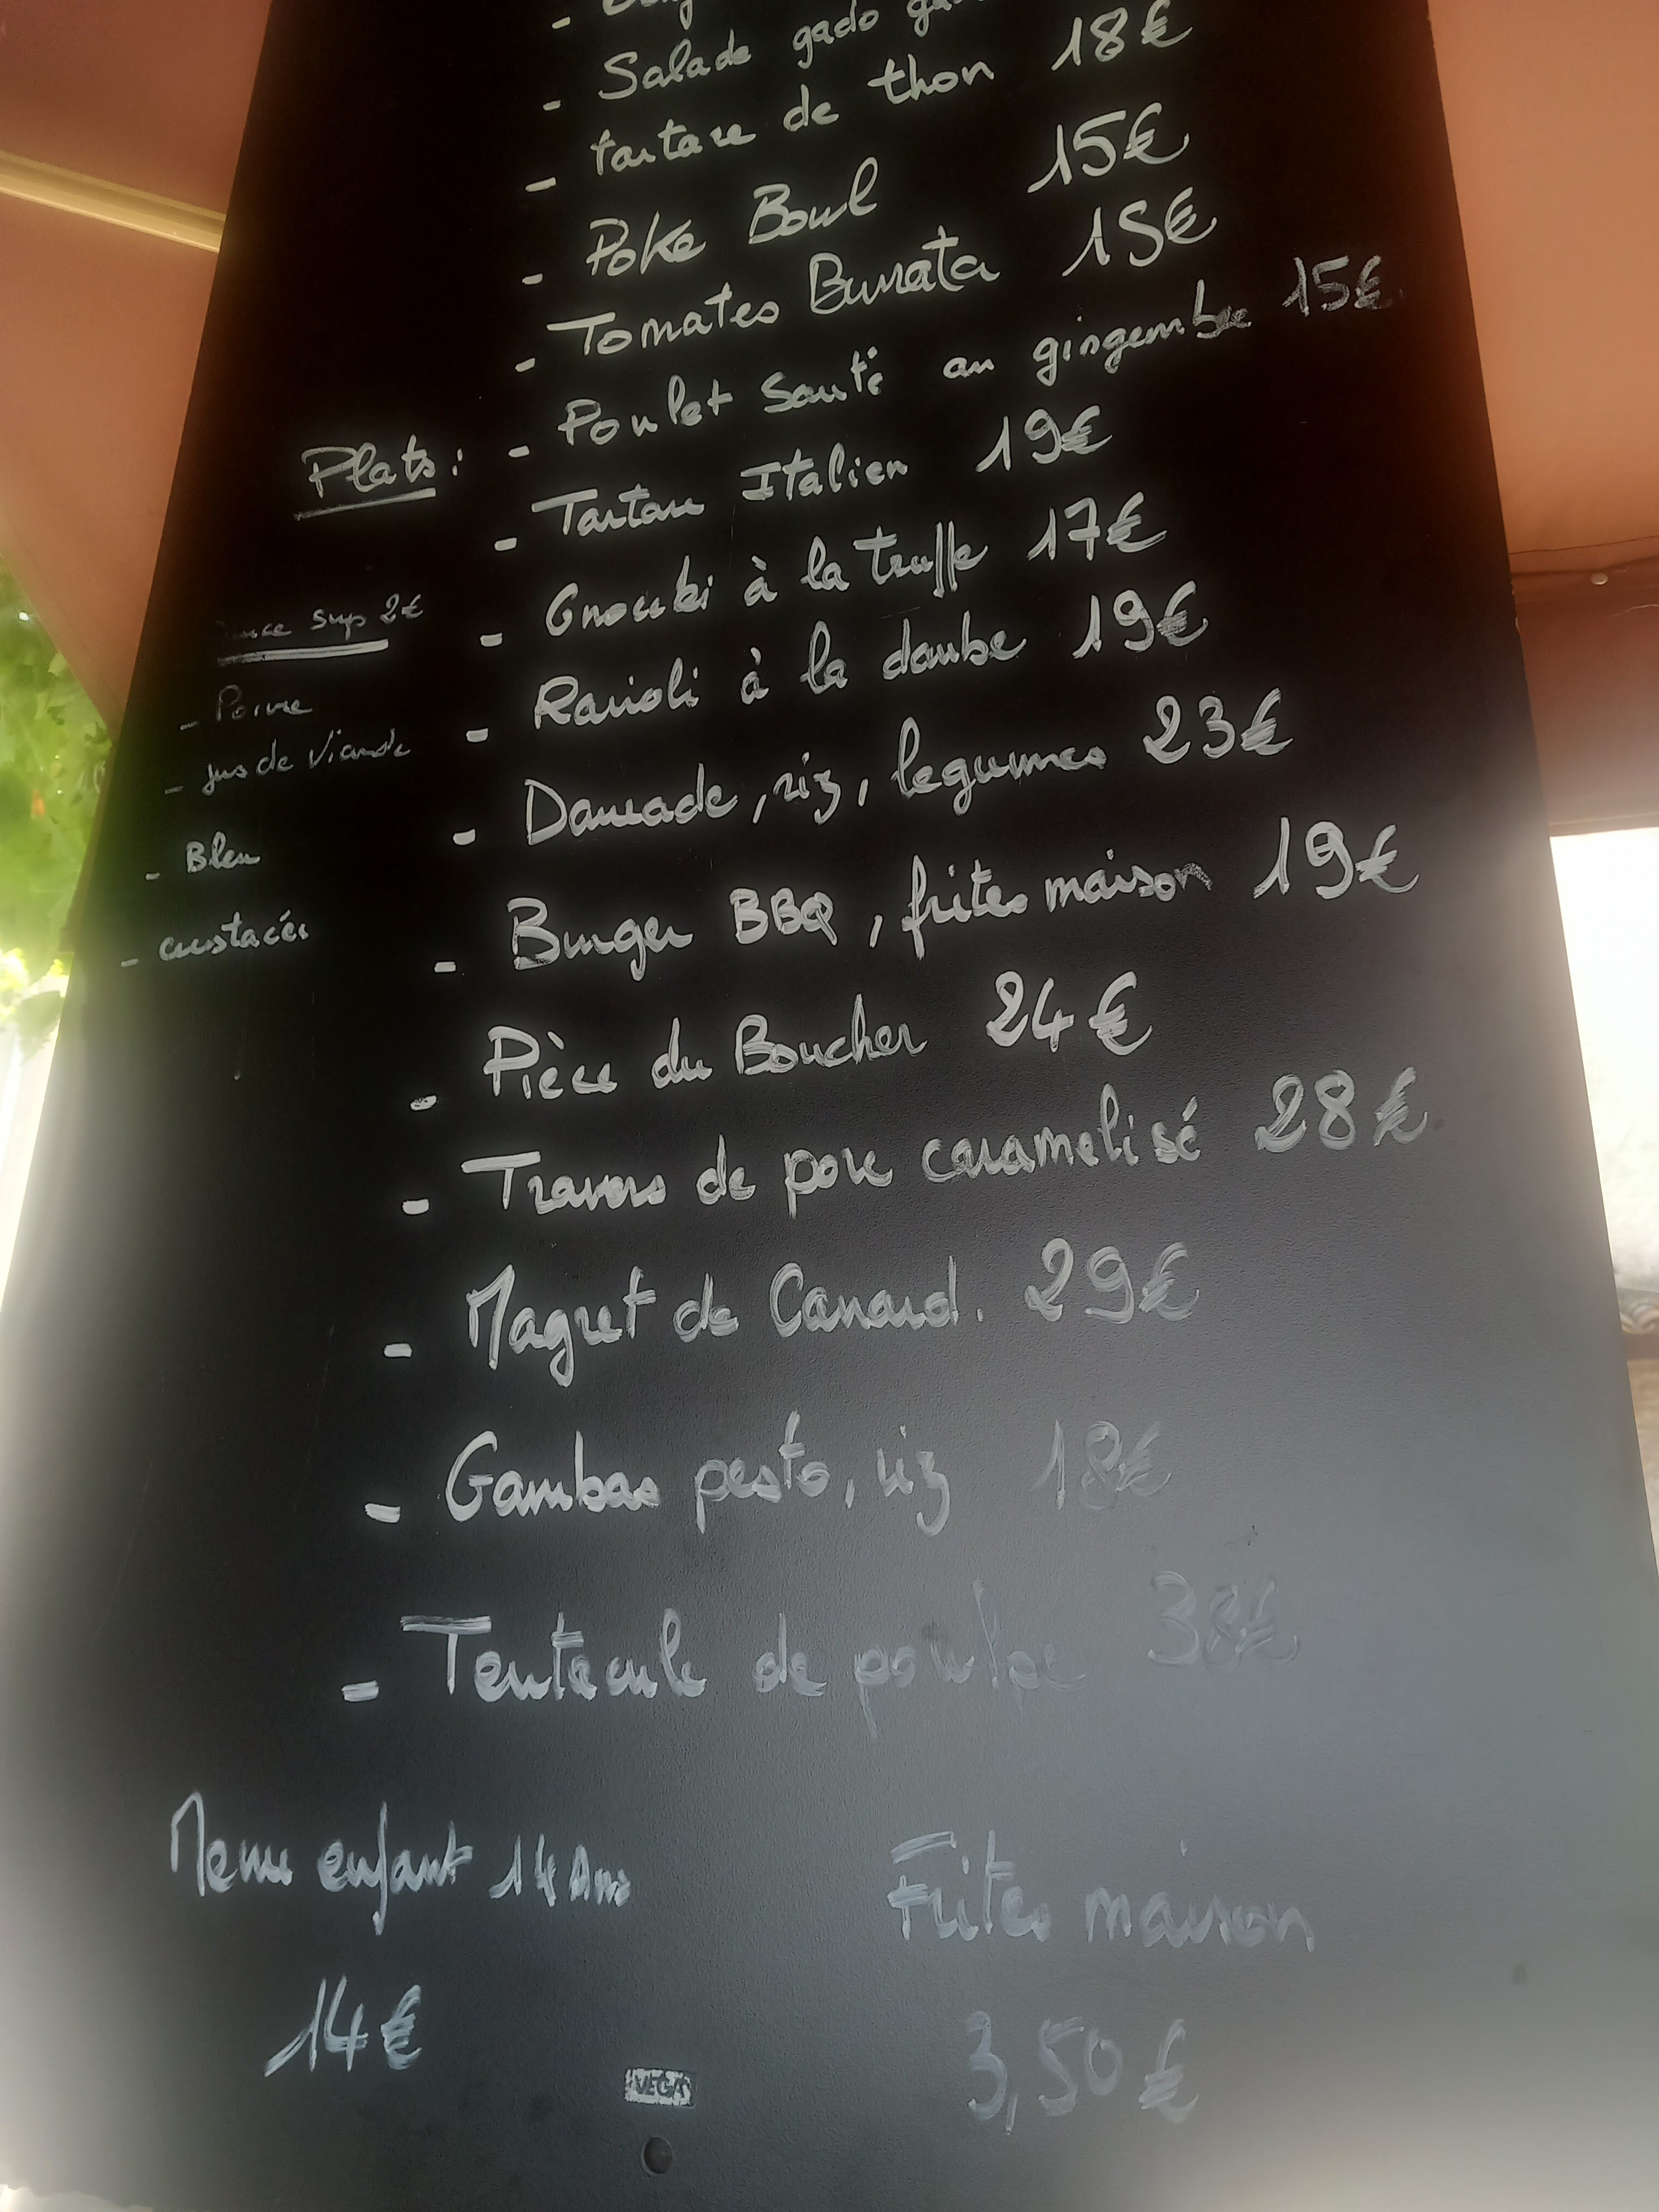 - Salade gado
- tartare de thon 18€
- Poke Bowl 15€
- Tomates Burrata 15€
Plats : - Poulet Sauté au gingembre 15€
- Tartare Italien 19€
- Gnocchi à la truffe 17€
- Ravioli à la daube 19€
- Daurade, riz, legumes 23€
- Burger BBQ, frites maison 19€
- Pièce du Boucher 24€
- Travers de porc caramelisé 28€
- Magret de Canard. 29€
- Gambas pesto, riz 18€
- Tentacule de poulpe 38€
sup 2€
- Poivre
- jus de viande
- Bleu
- crustacés
Menu enfant 14 Ans
14€
Frites maison
3,50€
VEGA